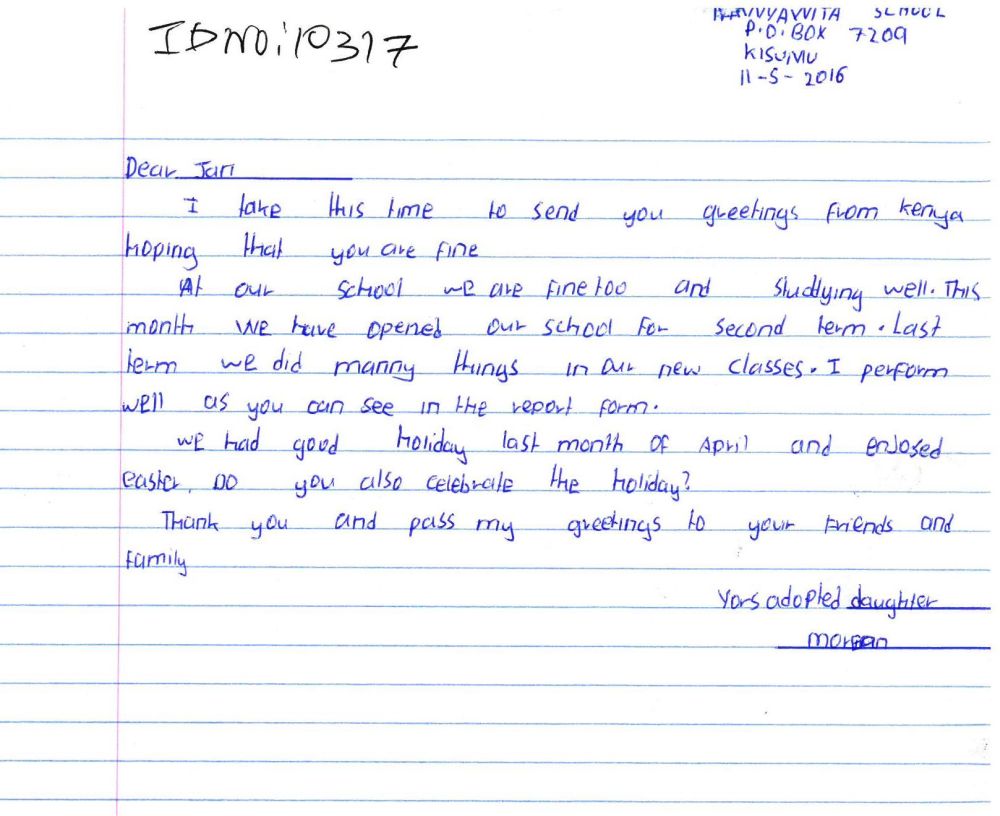 IDNO:10317
SCHOOL
P.O. BOX 7209
KISUMU
11-5-2016
Dear Jari
I take this time to send you greetings from kenya
hoping that you are fine
At our school we are fine too and studlying well. This
month we have opened our school for second term. Last
term we did manny things in our new classes. I perform
well as you can see in the report form.
we had good holiday last month of April and enjosed
easter. Do you also celebrate the holiday?
Thank you and pass my greetings to your friends and
family
Yors adopted daughter